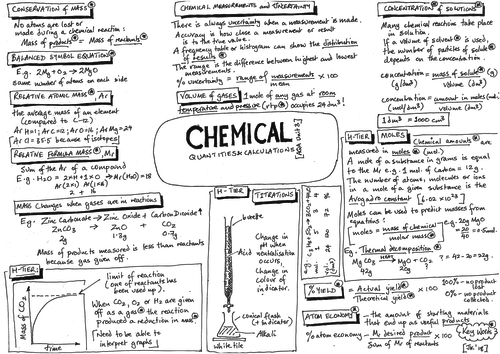 CONSERVATION of MASS
No atoms are lost or
made during a chemical reaction:
Mass of products = Mass of reactants
BALANCED SYMBOL EQUATIONS
E.g. 2Mg + O₂ → 2MgO
Same number of atoms on each side
RELATIVE ATOMIC MASS, Ar
the average mass of an element
(compared to C-12)
Ar H=1; Ar C=12; Ar O=16; Ar Mg=24
Ar Cl=35.5 because of isotopes
RELATIVE FORMULA MASS, Mr
Sum of the Ar of a compound
E.g. H₂O = 2xH + 1xO → Mr(H₂O)=18
Ar(2x1) Ar(1x16)
2 + 16
MASS Changes when gases are in reactions
E.g. Zinc Carbonate → Zinc Oxide + Carbon Dioxide↑
ZnCO₃ → ZnO + CO₂
2g 1.3g 0.7g
Mass of products measured is less than reactants
because gas given off.
H-TIER:
Mass of CO₂
time
limit of reaction
(one of reactants has
been used up).
When CO₂, O₂ or H₂ are given
off as a gas the reaction
produced a reduction in mass
[Need to be able to
interpret graphs]
CHEMICAL MEASUREMENTS and UNCERTAINTY
There is always uncertainty when a measurement is made.
Accuracy is how close a measurement or result
is to the true value.
A frequency table or histogram can show the distribution
of results
The range is the difference between highest and lowest
measurements.
% uncertainty = range of measurements x 100
mean
VOLUME of GASES 1 mole of any gas at room
temperature and pressure (rtp) occupies 24 dm³!
CHEMICAL
QUANTITIES & CALCULATIONS
[AQA Unit 3]
H-TIER TITRATIONS
burette
Acid
Change in
pH when
neutralisation
occurs.
Change in
colour of
indicator.
conical flask
(+ indicator)
Alkali
white tile
%YIELD = Actual yield x 100
Theoretical yield
100% - no product
lost
0% - no product
collected
ATOM ECONOMY - the amount of starting materials
that end up as useful products
% atom economy = Mr desired product x 100
Sum of Mr of reactants
Key Words
CONCENTRATION of SOLUTIONS
Many chemical reactions take place
in solution.
If a volume of solvent is used,
the number of particles of solute
depends on the concentration.
concentration = mass of solute (g)
(g/dm³) volume (dm³)
concentration = amount in moles (mol)
(mol/dm³) volume (dm³)
1 dm³ = 1000 cm³
H-TIER MOLES Chemical amounts are
measured in moles (mol)
A mole of a substance in grams is equal
to the Mr e.g. 1 mol of Carbon = 12g.
The number of atoms, molecules or ions
in a mole of a given substance is the
Avogadro constant [6.02 x 10²³]
Moles can be used to predict masses from
equations:
moles = mass of chemical
molar mass
e.g. 20g MgO
= 20/40 = 0.5 mol.
E.g. Thermal decomposition
MgCO₃ heat → MgO + CO₂
42g 20g ?
? = 42-20 = 22g.